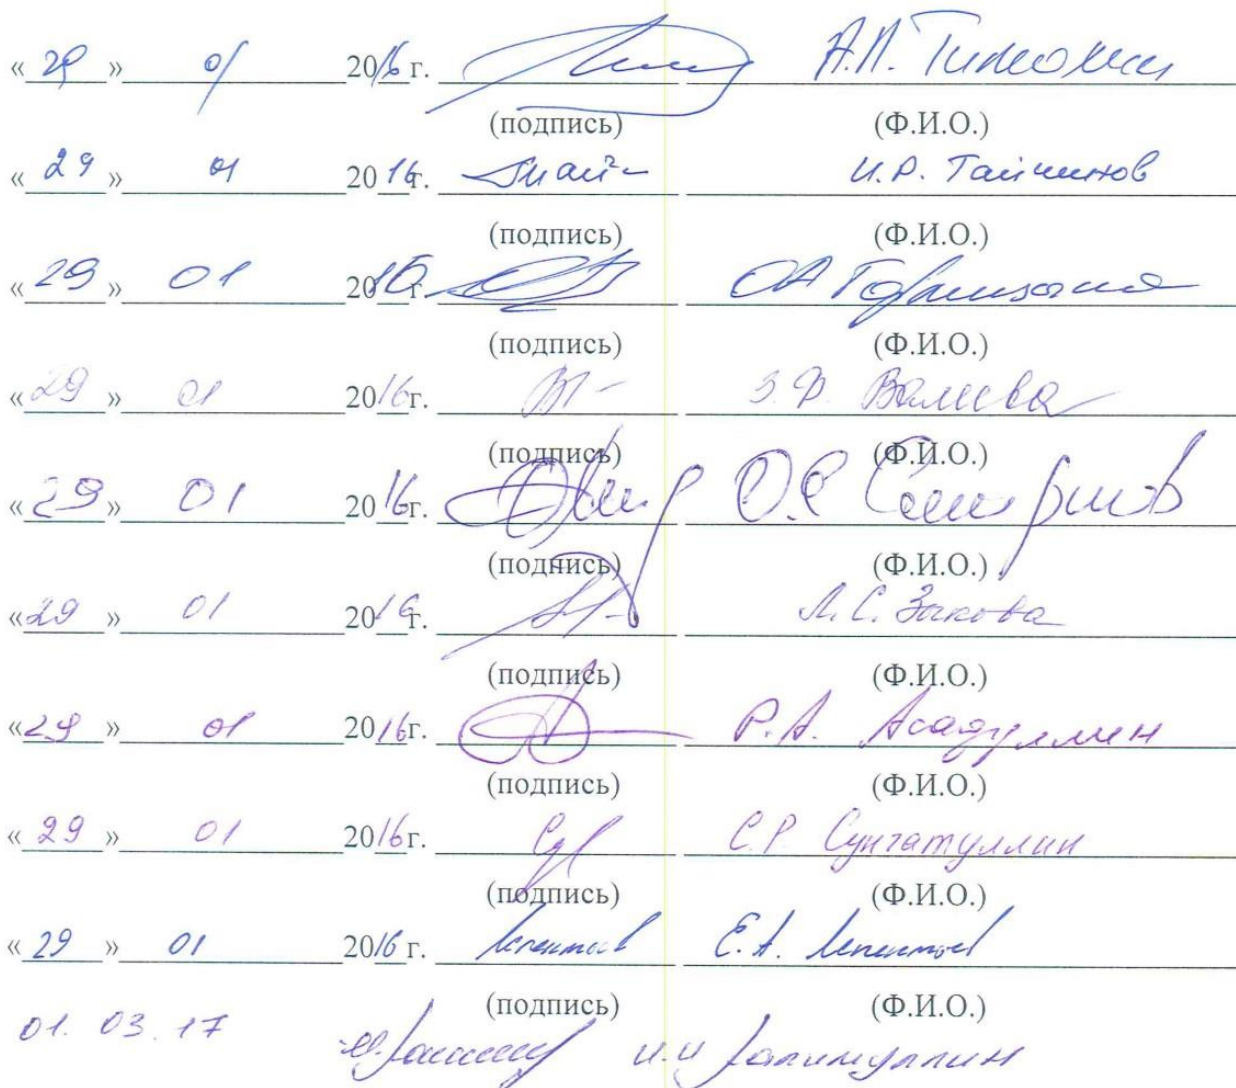 « 29 » 01 2016 г. А.П.
(подпись) (Ф.И.О.)
« 29 » 01 2016 г. И.Р. Тайчинов
(подпись) (Ф.И.О.)
« 29 » 01 2016 г. ОА
(подпись) (Ф.И.О.)
« 29 » 01 2016 г. З.Ф. Валиева
(подпись) (Ф.И.О.)
« 29 » 01 2016 г. О.С.
(подпись) (Ф.И.О.)
« 29 » 01 2016 г. Л.С. Закова
(подпись) (Ф.И.О.)
« 29 » 01 2016 г. Р.А. Асадуллин
(подпись) (Ф.И.О.)
« 29 » 01 2016 г. С.Р. Сунгатуллин
(подпись) (Ф.И.О.)
« 29 » 01 2016 г. Е.А.
(подпись) (Ф.И.О.)
01. 03. 17 И.И